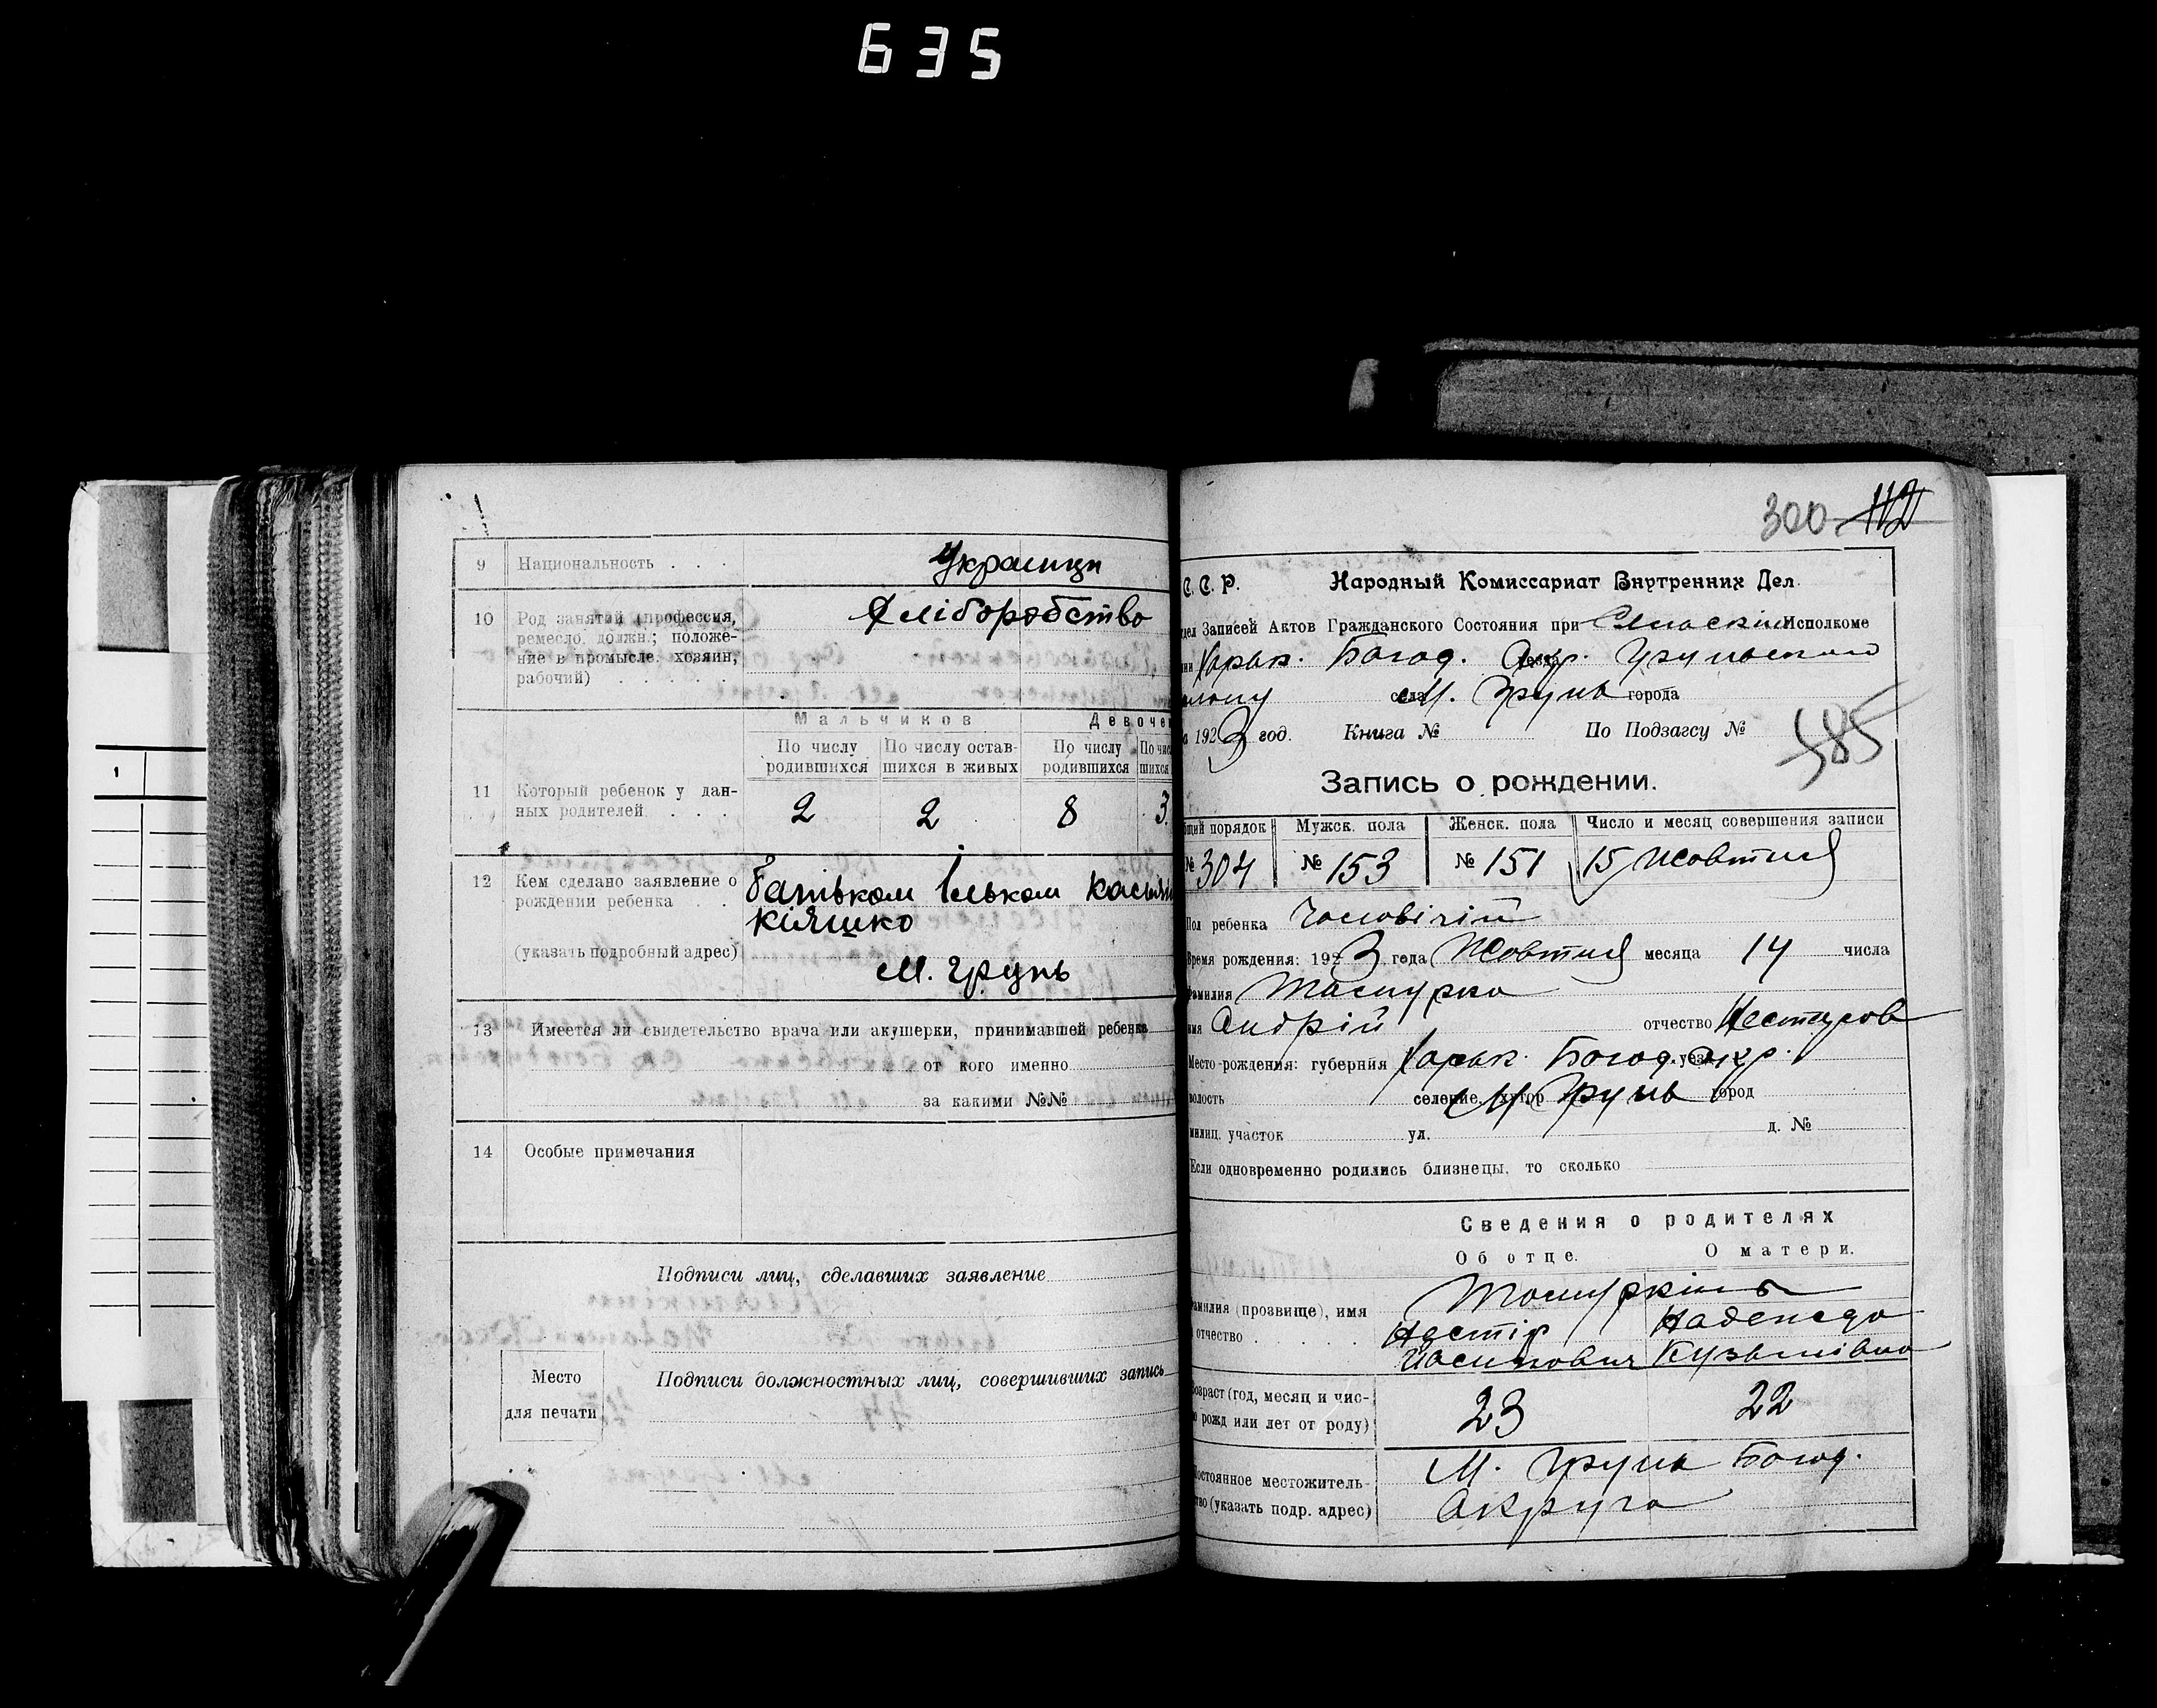 635
9 Национальность . . . Українци
10 Род занятий (профессия, Хліборобство
ремесло, должн.; положе-
ние в промысле, хозяин,
рабочий) . . . . .
Мальчиков Девоче
По числу родившихся По числу остав- шихся в живых По числу родившихся По чис шихся
11 Который ребенок у дан-
ных родителей . . .
2 2 8 3
12 Кем сделано заявление о
рождении ребенка . .
Батьком Ільком
Кіяшко
(указать подробный адрес)
М. Грунь
13 Имеется ли свидетельство врача или акушерки, принимавшей ребенка
от кого именно
за какими №№
14 Особые примечания
Подписи лиц, сделавших заявление
Место
для печати
Подписи должностных лиц, совершивших запись
300 112
С. С. Р. Народный Комиссариат Внутренних Дел.
дел Записей Актов Гражданского Состояния при Исполкоме
Харьк. Богод. Окр. Грунського
села М. Грунь города
192 3 год. Книга № По Подзагсу №
585
Запись о рождении.
бщий порядок Мужск. пола Женск. пола Число и месяц совершения записи
№ 304 № 153 № 151 15 Жовтня
Пол ребенка Чоловічій
Время рождения: 192 3 года Жовтня месяца 14 числа
амилия
имя Андрій отчество Нестеров
Место-рождения: губерния Харьк. Богод. уезд окр.
волость селение, хутор М. Грунь город
милиц. участок ул. д. №
Если одновременно родились близнецы, то сколько
Сведения о родителях
Об отце. О матери.
амилия (прозвище), имя
отчество . . . . .
Нестір Надежда
Кузьмівна
Возраст (год, месяц и чис-
о рожд или лет от роду)
23 22
Постоянное местожитель-
тво (указать подр. адрес)
М. Грунь Богод.
Округа